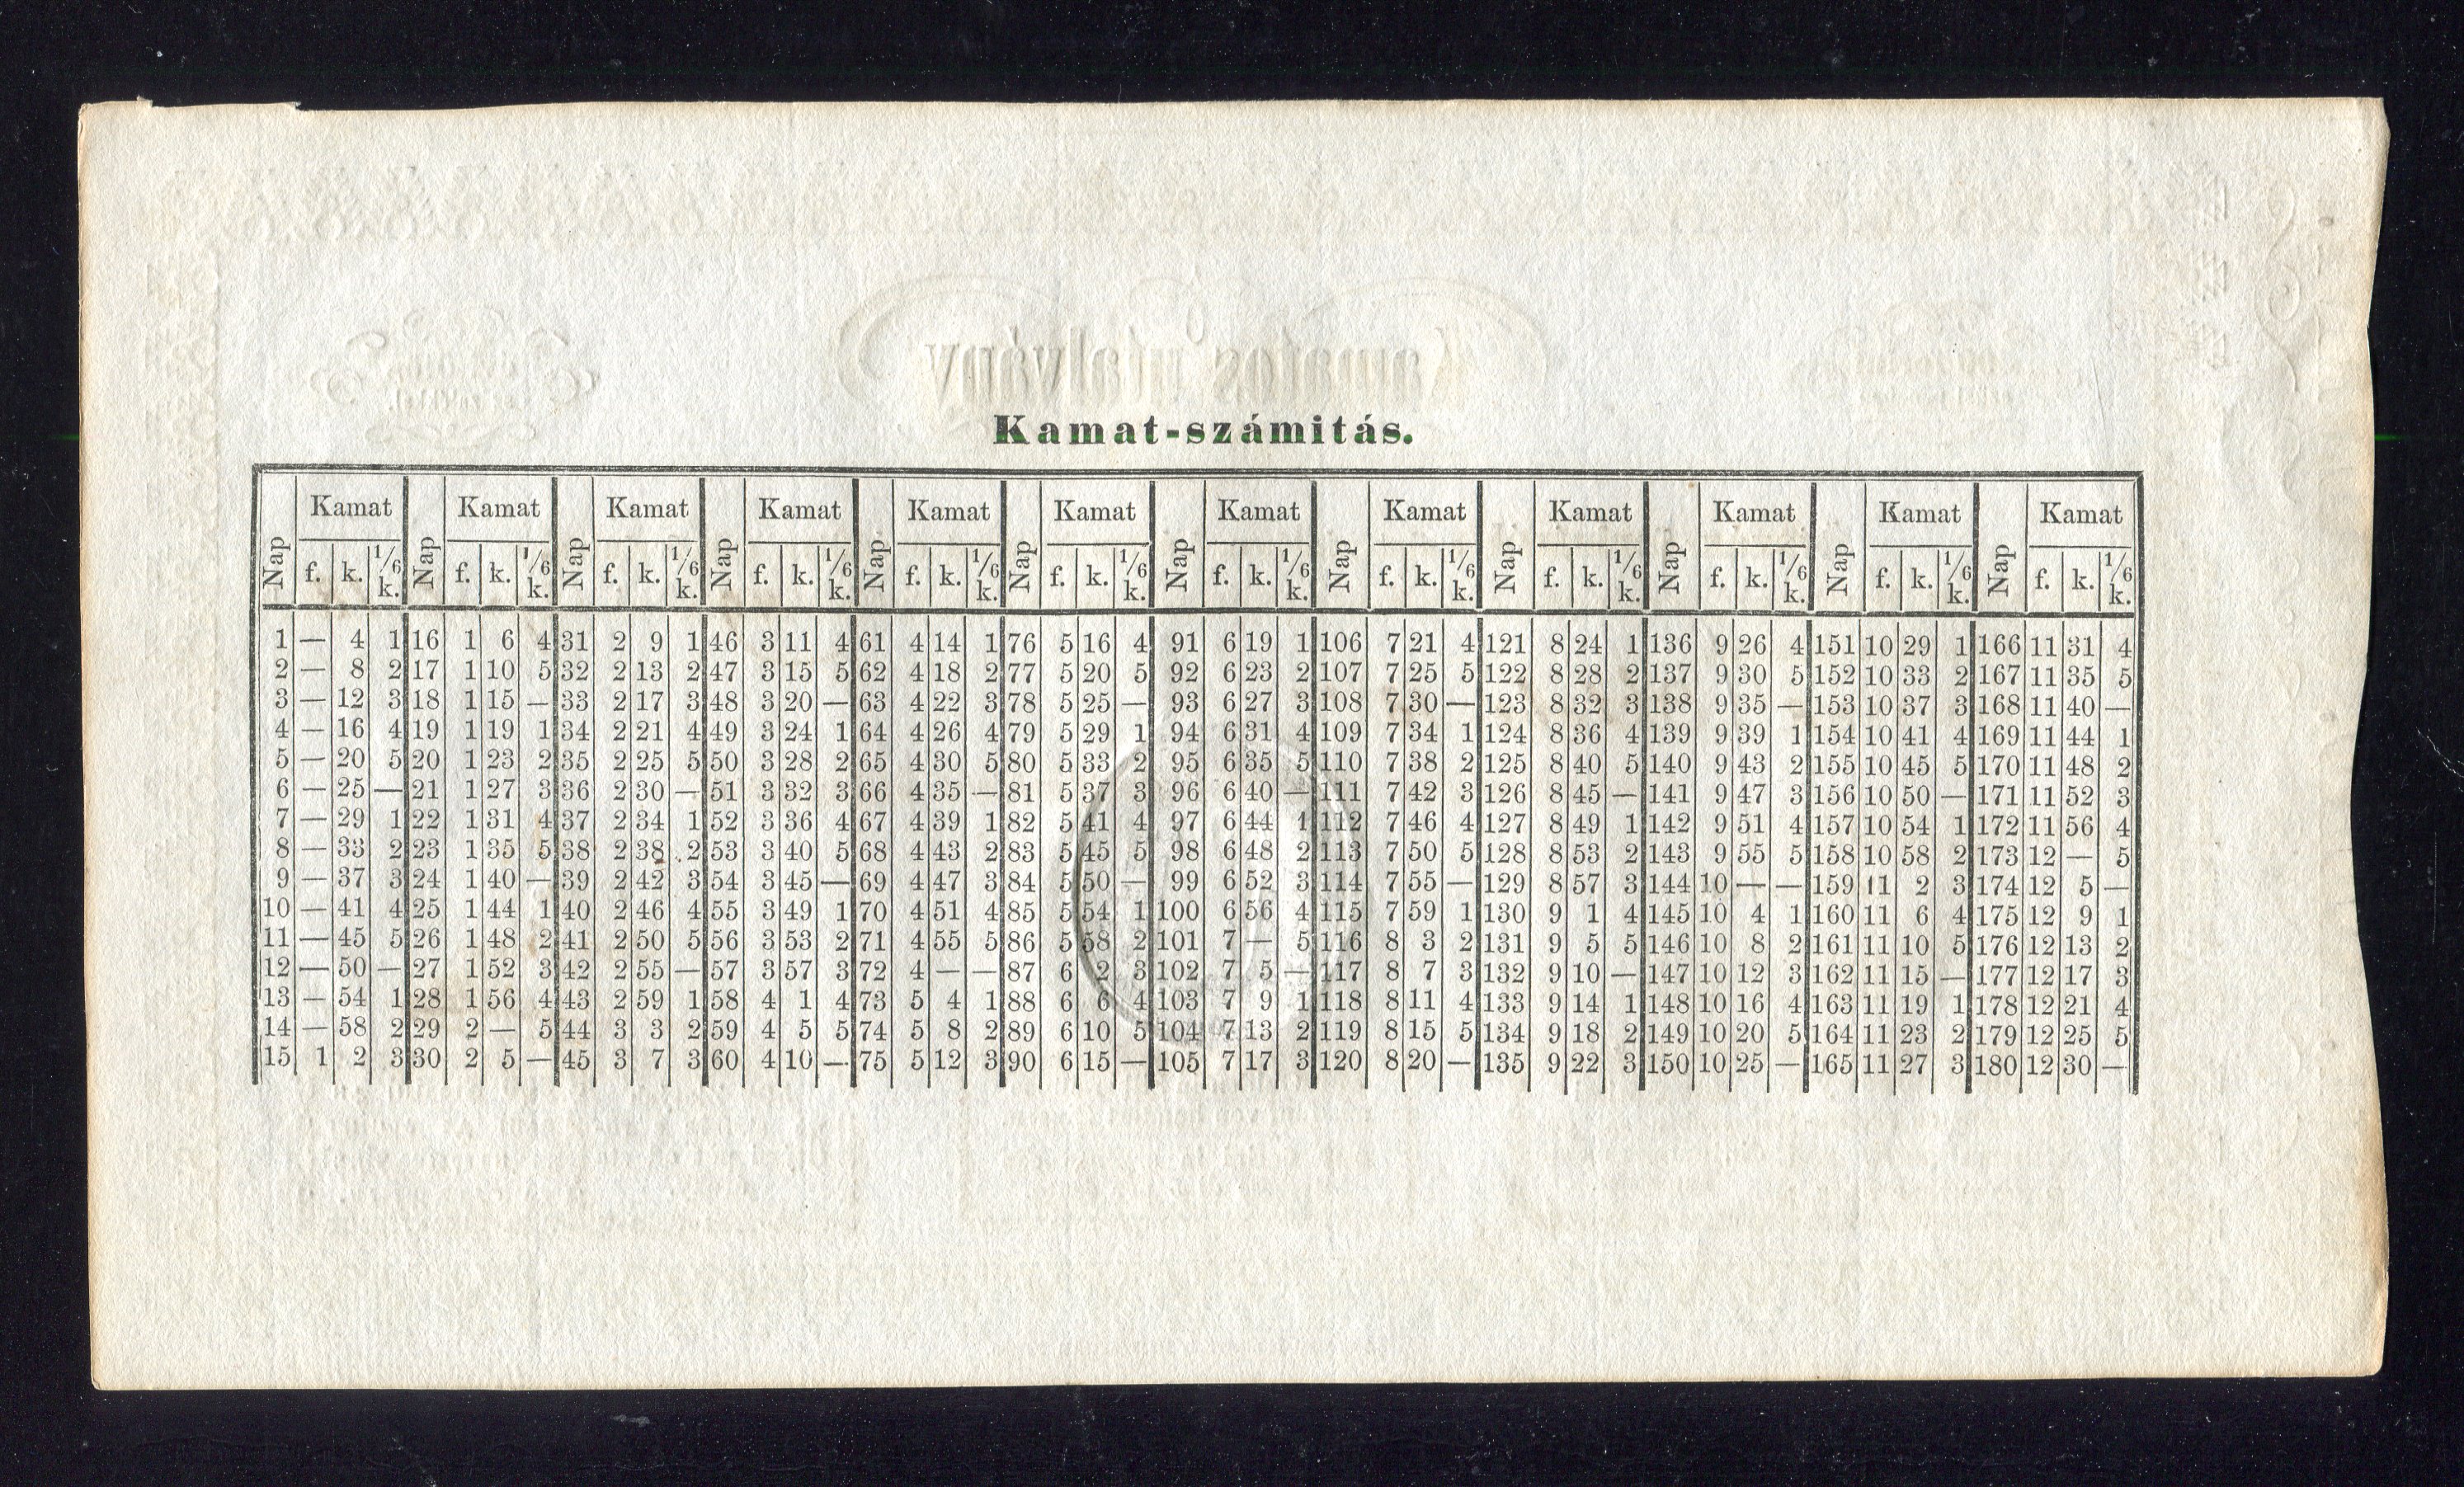 Kamatos utalvány
Kamat-számitás.
Kamat Kamat Kamat Kamat Kamat Kamat Kamat Kamat Kamat Kamat Kamat Kamat
Nap f. k. 1/6 k. Nap f. k. 1/6 k. Nap f. k. 1/6 k. Nap f. k. 1/6 k. Nap f. k. 1/6 k. Nap f. k. 1/6 k. Nap f. k. 1/6 k. Nap f. k. 1/6 k. Nap f. k. 1/6 k. Nap f. k. 1/6 k. Nap f. k. 1/6 k. Nap f. k. 1/6 k.
1 — 4 1 16 1 6 4 31 2 9 1 46 3 11 4 61 4 14 1 76 5 16 4 91 6 19 1 106 7 21 4 121 8 24 1 136 9 26 4 151 10 29 1 166 11 31 4
2 — 8 2 17 1 10 5 32 2 13 2 47 3 15 5 62 4 18 2 77 5 20 5 92 6 23 2 107 7 25 5 122 8 28 2 137 9 30 5 152 10 33 2 167 11 35 5
3 — 12 3 18 1 15 — 33 2 17 3 48 3 20 — 63 4 22 3 78 5 25 — 93 6 27 3 108 7 30 — 123 8 32 3 138 9 35 — 153 10 37 3 168 11 40 —
4 — 16 4 19 1 19 1 34 2 21 4 49 3 24 1 64 4 26 4 79 5 29 1 94 6 31 4 109 7 34 1 124 8 36 4 139 9 39 1 154 10 41 4 169 11 44 1
5 — 20 5 20 1 23 2 35 2 25 5 50 3 28 2 65 4 30 5 80 5 33 2 95 6 35 5 110 7 38 2 125 8 40 5 140 9 43 2 155 10 45 5 170 11 48 2
6 — 25 — 21 1 27 3 36 2 30 — 51 3 32 3 66 4 35 — 81 5 37 3 96 6 40 — 111 7 42 3 126 8 45 — 141 9 47 3 156 10 50 — 171 11 52 3
7 — 29 1 22 1 31 4 37 2 34 1 52 3 36 4 67 4 39 1 82 5 41 4 97 6 44 1 112 7 46 4 127 8 49 1 142 9 51 4 157 10 54 1 172 11 56 4
8 — 33 2 23 1 35 5 38 2 38 2 53 3 40 5 68 4 43 2 83 5 45 5 98 6 48 2 113 7 50 5 128 8 53 2 143 9 55 5 158 10 58 2 173 12 — 5
9 — 37 3 24 1 40 — 39 2 42 3 54 3 45 — 69 4 47 3 84 5 50 — 99 6 52 3 114 7 55 — 129 8 57 3 144 10 — — 159 11 2 3 174 12 5 —
10 — 41 4 25 1 44 1 40 2 46 4 55 3 49 1 70 4 51 4 85 5 54 1 100 6 56 4 115 7 59 1 130 9 1 4 145 10 4 1 160 11 6 4 175 12 9 1
11 — 45 5 26 1 48 2 41 2 50 5 56 3 53 2 71 4 55 5 86 5 58 2 101 7 — 5 116 8 3 2 131 9 5 5 146 10 8 2 161 11 10 5 176 12 13 2
12 — 50 — 27 1 52 3 42 2 55 — 57 3 57 3 72 4 — — 87 6 2 3 102 7 5 — 117 8 7 3 132 9 10 — 147 10 12 3 162 11 15 — 177 12 17 3
13 — 54 1 28 1 56 4 43 2 59 1 58 4 1 4 73 5 4 1 88 6 6 4 103 7 9 1 118 8 11 4 133 9 14 1 148 10 16 4 163 11 19 1 178 12 21 4
14 — 58 2 29 2 — 5 44 3 3 2 59 4 5 5 74 5 8 2 89 6 10 5 104 7 13 2 119 8 15 5 134 9 18 2 149 10 20 5 164 11 23 2 179 12 25 5
15 1 2 3 30 2 5 — 45 3 7 3 60 4 10 — 75 5 12 3 90 6 15 — 105 7 17 3 120 8 20 — 135 9 22 3 150 10 25 — 165 11 27 3 180 12 30 —